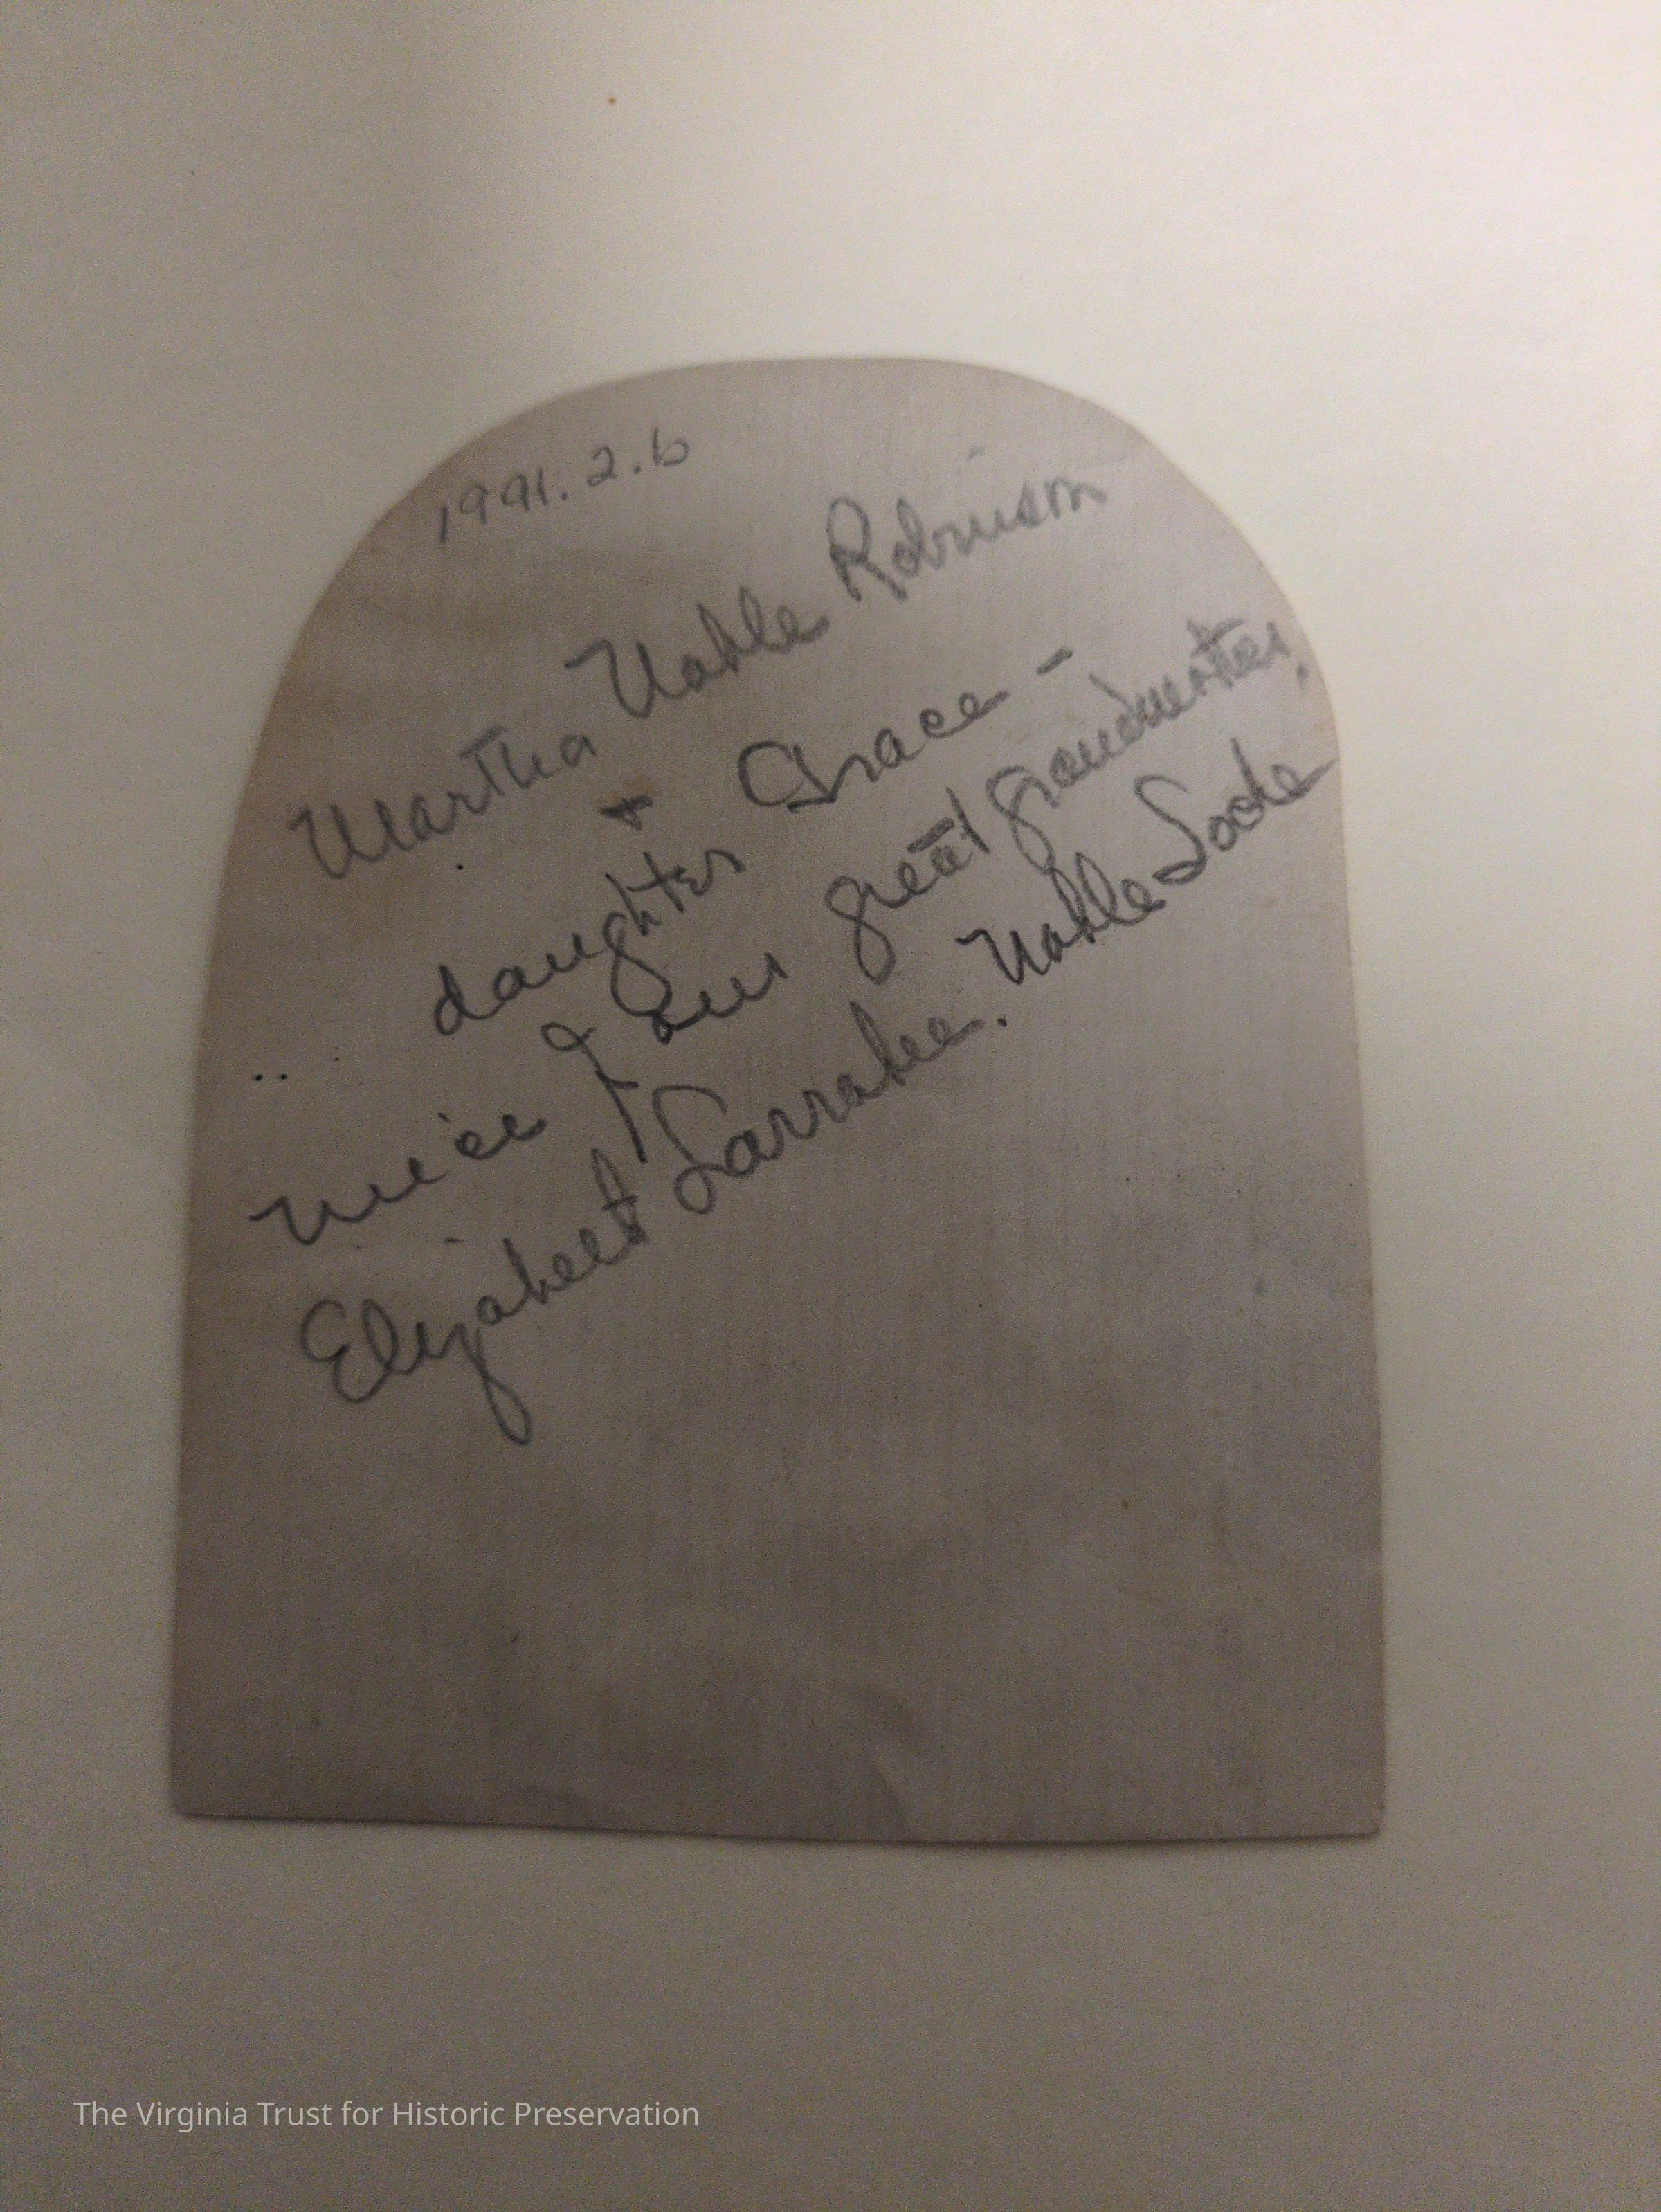 1991.2.b
Martha Noble Robinson
+
daughter Grace -
niece of our great grandmother,
Elizabeth Larrabee. Noble Locke
The Virginia Trust for Historic Preservation